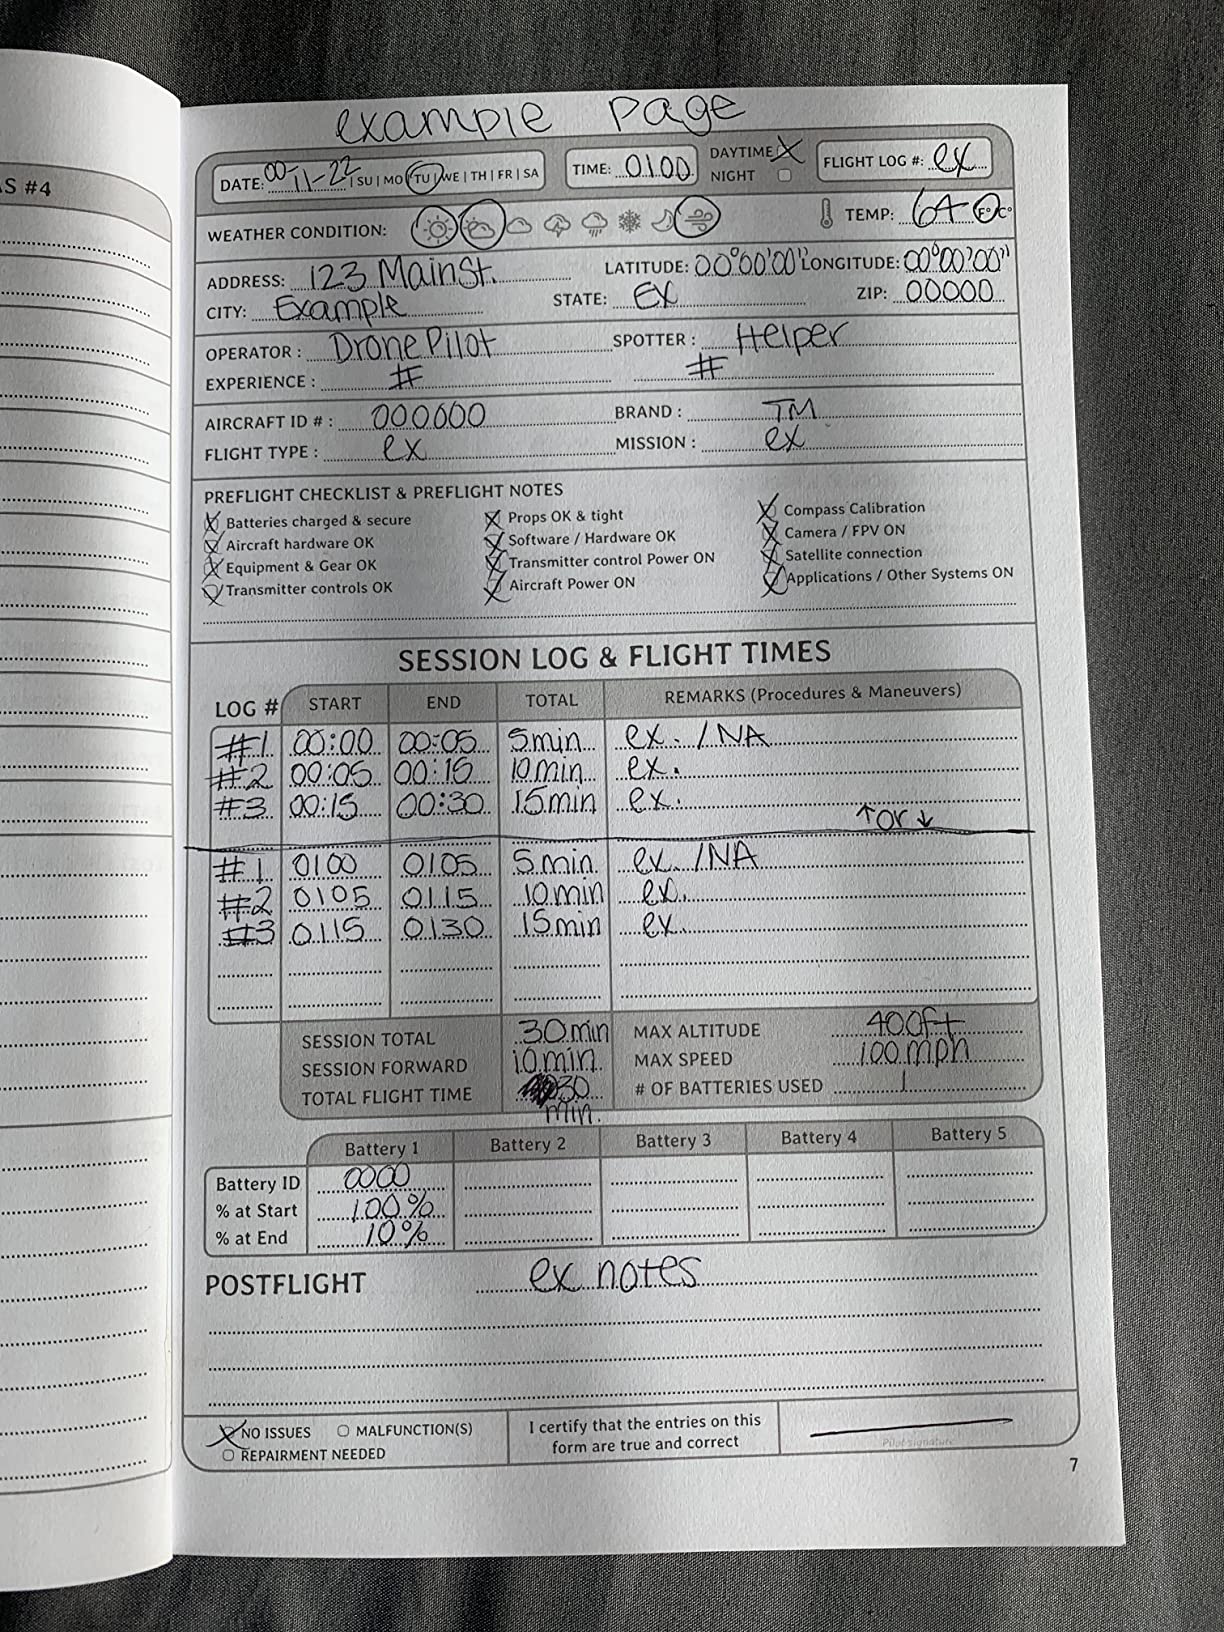 AS #4
example page
DATE: 00-11-22 | SU | MO | TU | WE | TH | FR | SA TIME: 0100 DAYTIME X NIGHT FLIGHT LOG #: ex
WEATHER CONDITION: TEMP: 64 F° C°
ADDRESS: 123 Main St. LATITUDE: 00°00'00" LONGITUDE: 00°00'00"
CITY: Example STATE: EX ZIP: 00000
OPERATOR : Drone Pilot SPOTTER : Helper
EXPERIENCE : # #
AIRCRAFT ID # : 000000 BRAND : TM
FLIGHT TYPE : ex MISSION : ex
PREFLIGHT CHECKLIST & PREFLIGHT NOTES
X Batteries charged & secure X Props OK & tight X Compass Calibration
X Aircraft hardware OK X Software / Hardware OK X Camera / FPV ON
X Equipment & Gear OK X Transmitter control Power ON X Satellite connection
X Transmitter controls OK X Aircraft Power ON X Applications / Other Systems ON
SESSION LOG & FLIGHT TIMES
LOG # START END TOTAL REMARKS (Procedures & Maneuvers)
#1 00:00 00:05 5min ex. / NA
#2 00:05 00:15 10min ex.
#3 00:15 00:30 15min ex.
↑or↓
#1 0100 0105 5min ex. / NA
#2 0105 0115 10min ex.
#3 0115 0130 15min ex.
SESSION TOTAL 30min MAX ALTITUDE 400ft
SESSION FORWARD 10min. MAX SPEED 100 mph
TOTAL FLIGHT TIME 30 min. # OF BATTERIES USED 1
Battery 1 Battery 2 Battery 3 Battery 4 Battery 5
Battery ID 0000
% at Start 100%
% at End 10%
POSTFLIGHT ex notes
X NO ISSUES MALFUNCTION(S)
REPAIRMENT NEEDED
I certify that the entries on this
form are true and correct
Pilot Signature
7